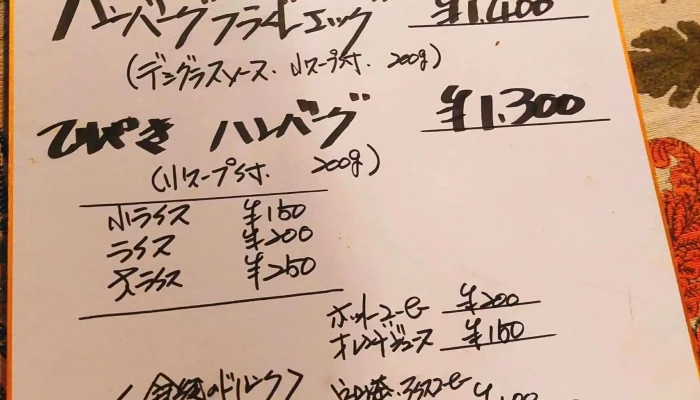 ハンバーグフライドエッグ ¥1,400
(デミグラスソース. 小スープ付. 200g)
てりやき ハンバーグ ¥1,300
(小スープ付. 200g)
小ライス ¥150
ライス ¥200
大ライス ¥250
ホットコーヒー ¥200
オレンジジュース ¥150
のドリンク〉 アイスコーヒー